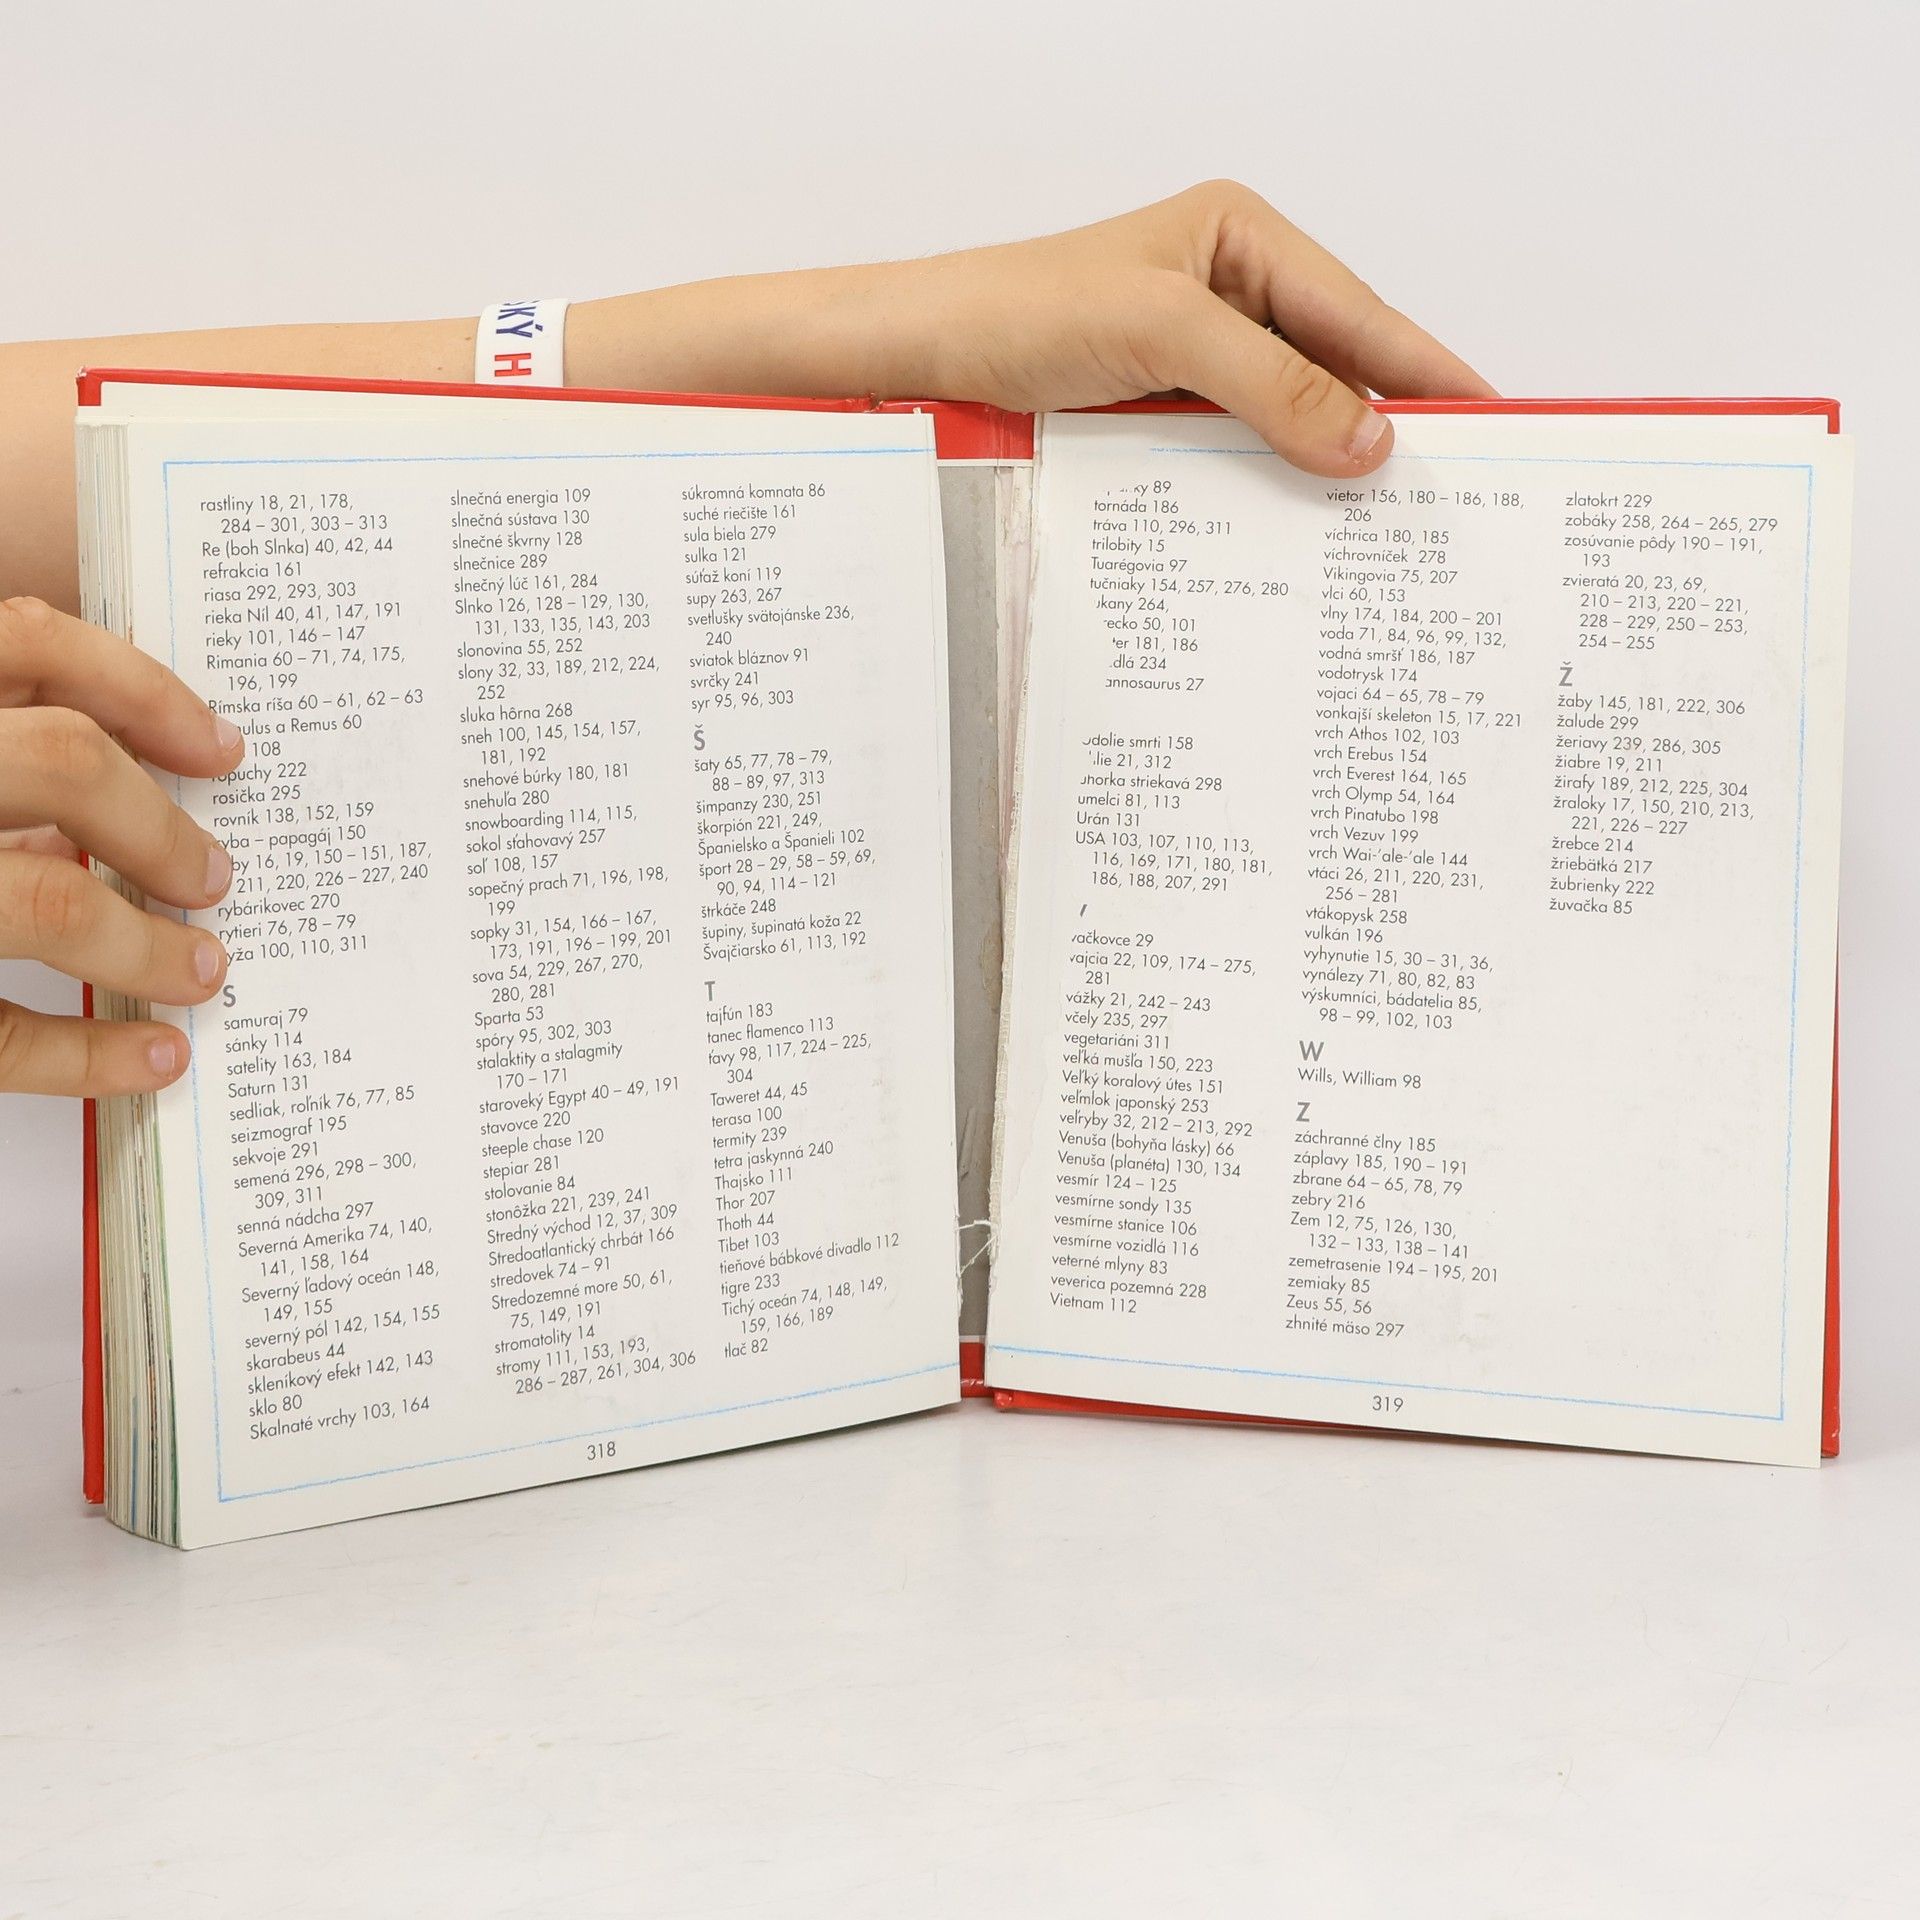 SKÝ H
rastliny 18, 21, 178,
284 – 301, 303 – 313
Re (boh Slnka) 40, 42, 44
refrakcia 161
riasa 292, 293, 303
rieka Níl 40, 41, 147, 191
rieky 101, 146 – 147
Rimania 60 – 71, 74, 175,
196, 199
Rímska ríša 60 – 61, 62 – 63
a Remus 60
108
ropuchy 222
rosička 295
rovník 138, 152, 159
ryba – papagáj 150
16, 19, 150 – 151, 187,
211, 220, 226 – 227, 240
rybárikovec 270
rytieri 76, 78 – 79
ryža 100, 110, 311
S
samuraj 79
sánky 114
satelity 163, 184
Saturn 131
sedliak, roľník 76, 77, 85
seizmograf 195
sekvoje 291
semená 296, 298 – 300,
309, 311
senná nádcha 297
Severná Amerika 74, 140,
141, 158, 164
Severný ľadový oceán 148,
149, 155
severný pól 142, 154, 155
skarabeus 44
skleníkový efekt 142, 143
sklo 80
Skalnaté vrchy 103, 164
slnečná energia 109
slnečná sústava 130
slnečné škvrny 128
slnečnice 289
slnečný lúč 161, 284
Slnko 126, 128 – 129, 130,
131, 133, 135, 143, 203
slonovina 55, 252
slony 32, 33, 189, 212, 224,
252
sluka hôrna 268
sneh 100, 145, 154, 157,
181, 192
snehové búrky 180, 181
snehuľa 280
snowboarding 114, 115,
sokol sťahovavý 257
soľ 108, 157
sopečný prach 71, 196, 198,
199
sopky 31, 154, 166 – 167,
173, 191, 196 – 199, 201
sova 54, 229, 267, 270,
280, 281
Sparta 53
spóry 95, 302, 303
stalaktity a stalagmity
170 – 171
staroveký Egypt 40 – 49, 191
stavovce 220
steeple chase 120
stepiar 281
stolovanie 84
stonôžka 221, 239, 241
Stredný východ 12, 37, 309
Stredoatlantický chrbát 166
stredovek 74 – 91
Stredozemné more 50, 61,
75, 149, 191
stromatolity 14
stromy 111, 153, 193,
286 – 287, 261, 304, 306
súkromná komnata 86
suché riečište 161
sula biela 279
sulka 121
súťaž koní 119
supy 263, 267
svetlušky svätojánske 236,
240
sviatok bláznov 91
svrčky 241
syr 95, 96, 303
Š
šaty 65, 77, 78 – 79,
88 – 89, 97, 313
šimpanzy 230, 251
škorpión 221, 249,
Španielsko a Španieli 102
šport 28 – 29, 58 – 59, 69,
90, 94, 114 – 121
štrkáče 248
šupiny, šupinatá koža 22
Švajčiarsko 61, 113, 192
T
tajfún 183
tanec flamenco 113
ťavy 98, 117, 224 – 225,
304
Taweret 44, 45
terasa 100
termity 239
tetra jaskynná 240
Thajsko 111
Thor 207
Thoth 44
Tibet 103
tieňové bábkové divadlo 112
tigre 233
Tichý oceán 74, 148, 149,
159, 166, 189
tlač 82
318
89
tornáda 186
tráva 110, 296, 311
trilobity 15
Tuarégovia 97
tučniaky 154, 257, 276, 280
264,
50, 101
181, 186
234
27
158
21, 312
uhorka striekavá 298
umelci 81, 113
Urán 131
USA 103, 107, 110, 113,
116, 169, 171, 180, 181,
186, 188, 207, 291
vačkovce 29
vajcia 22, 109, 174 – 275,
281
vážky 21, 242 – 243
včely 235, 297
vegetariáni 311
veľká mušľa 150, 223
Veľký koralový útes 151
veľmlok japonský 253
veľryby 32, 212 – 213, 292
Venuša (bohyňa lásky) 66
Venuša (planéta) 130, 134
vesmír 124 – 125
vesmírne sondy 135
vesmírne stanice 106
vesmírne vozidlá 116
veterné mlyny 83
veverica pozemná 228
Vietnam 112
vietor 156, 180 – 186, 188,
206
víchrica 180, 185
víchrovníček 278
Vikingovia 75, 207
vlci 60, 153
vlny 174, 184, 200 – 201
voda 71, 84, 96, 99, 132,
vodná smršť 186, 187
vodotrysk 174
vojaci 64 – 65, 78 – 79
vonkajší skeleton 15, 17, 221
vrch Athos 102, 103
vrch Erebus 154
vrch Everest 164, 165
vrch Olymp 54, 164
vrch Pinatubo 198
vrch Vezuv 199
vrch Wai-'ale-'ale 144
vtáci 26, 211, 220, 231,
256 – 281
vtákopysk 258
vulkán 196
vyhynutie 15, 30 – 31, 36,
vynálezy 71, 80, 82, 83
výskumníci, bádatelia 85,
98 – 99, 102, 103
W
Wills, William 98
Z
záchranné člny 185
záplavy 185, 190 – 191
zbrane 64 – 65, 78, 79
zebry 216
Zem 12, 75, 126, 130,
132 – 133, 138 – 141
zemetrasenie 194 – 195, 201
zemiaky 85
Zeus 55, 56
zhnité mäso 297
zlatokrt 229
zobáky 258, 264 – 265, 279
zosúvanie pôdy 190 – 191,
193
zvieratá 20, 23, 69,
210 – 213, 220 – 221,
228 – 229, 250 – 253,
254 – 255
Ž
žaby 145, 181, 222, 306
žalude 299
žeriavy 239, 286, 305
žiabre 19, 211
žirafy 189, 212, 225, 304
žraloky 17, 150, 210, 213,
221, 226 – 227
žrebce 214
žriebätká 217
žubrienky 222
žuvačka 85
319